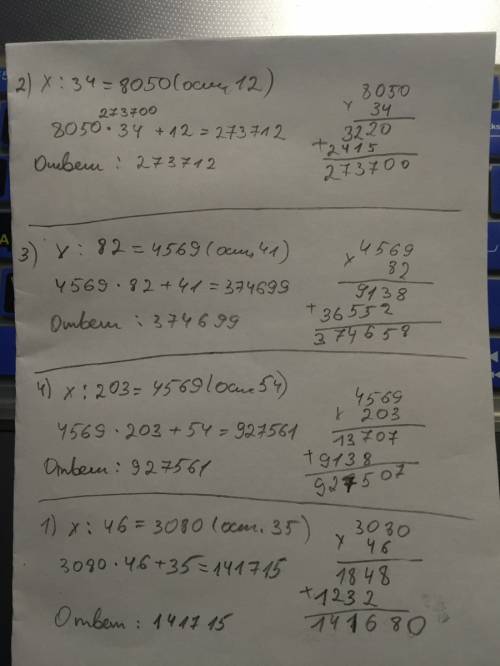 2) x : 34 = 8050 (ост. 12)
273700
8050 · 34 + 12 = 273712
Ответ : 273712
8050
× 34
3220
+ 2415
273700
3) x : 82 = 4569 (ост. 41)
4569 · 82 + 41 = 374699
Ответ : 374699
4569
× 82
9138
+ 36552
374658
4) x : 203 = 4569 (ост. 54)
4569 · 203 + 54 = 927561
Ответ : 927561
4569
× 203
13707
+ 9138
927507
1) x : 46 = 3080 (ост. 35)
3080 · 46 + 35 = 141715
Ответ : 141715
3080
× 46
1848
+ 1232
141680